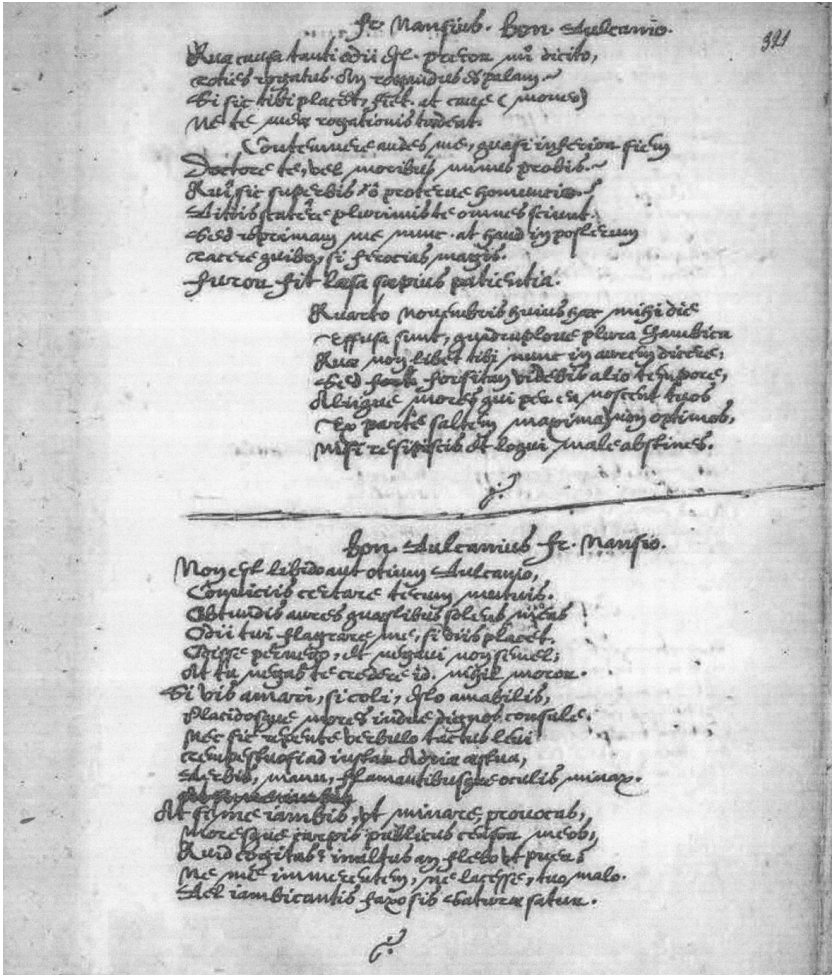 Fr. Nansius. Bon. Vulcanio.
321
Quae causa tanti odii est. precor mihi dicito,
Toties rogatus. An rogandus es palam?
Si sic tibi placet, fiet. at cave (moneo)
Ne te meae rogationis taedeat.
Contemnere audes me, quasi inferior siem
Doctore te, vel moribus minus probis.
Qui sic superbis ô proterve homuncio?
Vitiis scatere plurimis te omnes sciunt.
Sed reprimam me nunc. at haud in posterum
Tacere quibo, si ferocias magis.
Furor fit laesa saepius patientia.
Quarto Novembris huius haec mihi die
Effusa sunt, quadruplove plura Iambica
Quae non libet tibi nunc in aurem dicere;
Sed forsitan videbis alio tempore,
Aliique mores qui per ea noscent tuos
Ex parte saltem maxima non optimos,
Nisi resipiscis et loqui male abstines.
Bon. Vulcanius Fr. Nansio.
Non est libido aut otium Vulcanio,
Conviciis certare tecum mutuis.
Obtundis aures quaestibus solens meas
Odii tui flagrare me, si diis placet.
Odisse pernego, et negavi non semel;
At tu negas te credere id. nihil moror.
Si vis amari, si coli, esto amabilis,
Placidosque mores indue dignos consule.
Nec sic repente verbulo tactus levi
Tempestuosi ad instar Adriae aestua,
Verbis, manu, flamantibusque oculis minax.
At si me iambis, ut minare, provocas,
Moresque carpis publicus censor meos,
Quid cogitas? inultus an flebo ut puer?
Ne me immerentem, ne lacesse, tuo malo.
Vel iambicantis faxo sis Satura satur.